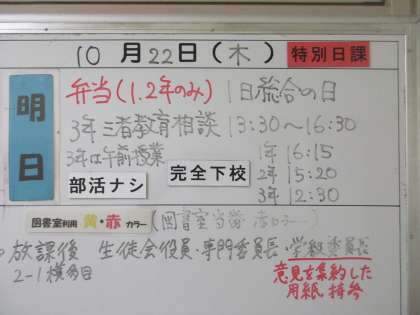 10月22日(木) 特別日課
明日
弁当(1.2年のみ) 1日総合の日
3年 三者教育相談 13:30〜16:30
3年は午前授業
部活ナシ 完全下校
1年 16:15
2年 15:20
3年 12:30
図書室利用 黄・赤 カラー (図書室当番
放課後 生徒会役員・専門委員長・学級委員長
2-1横
意見を集約した
用紙 持参